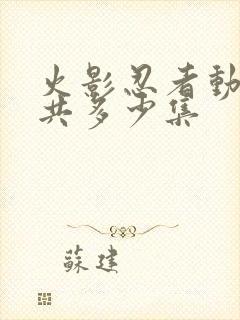 火影忍者動
共多少集
蘇建